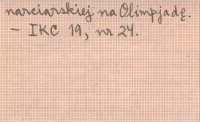 narciarskiej na Olimpjadę.
– IKC 19, nr 24.